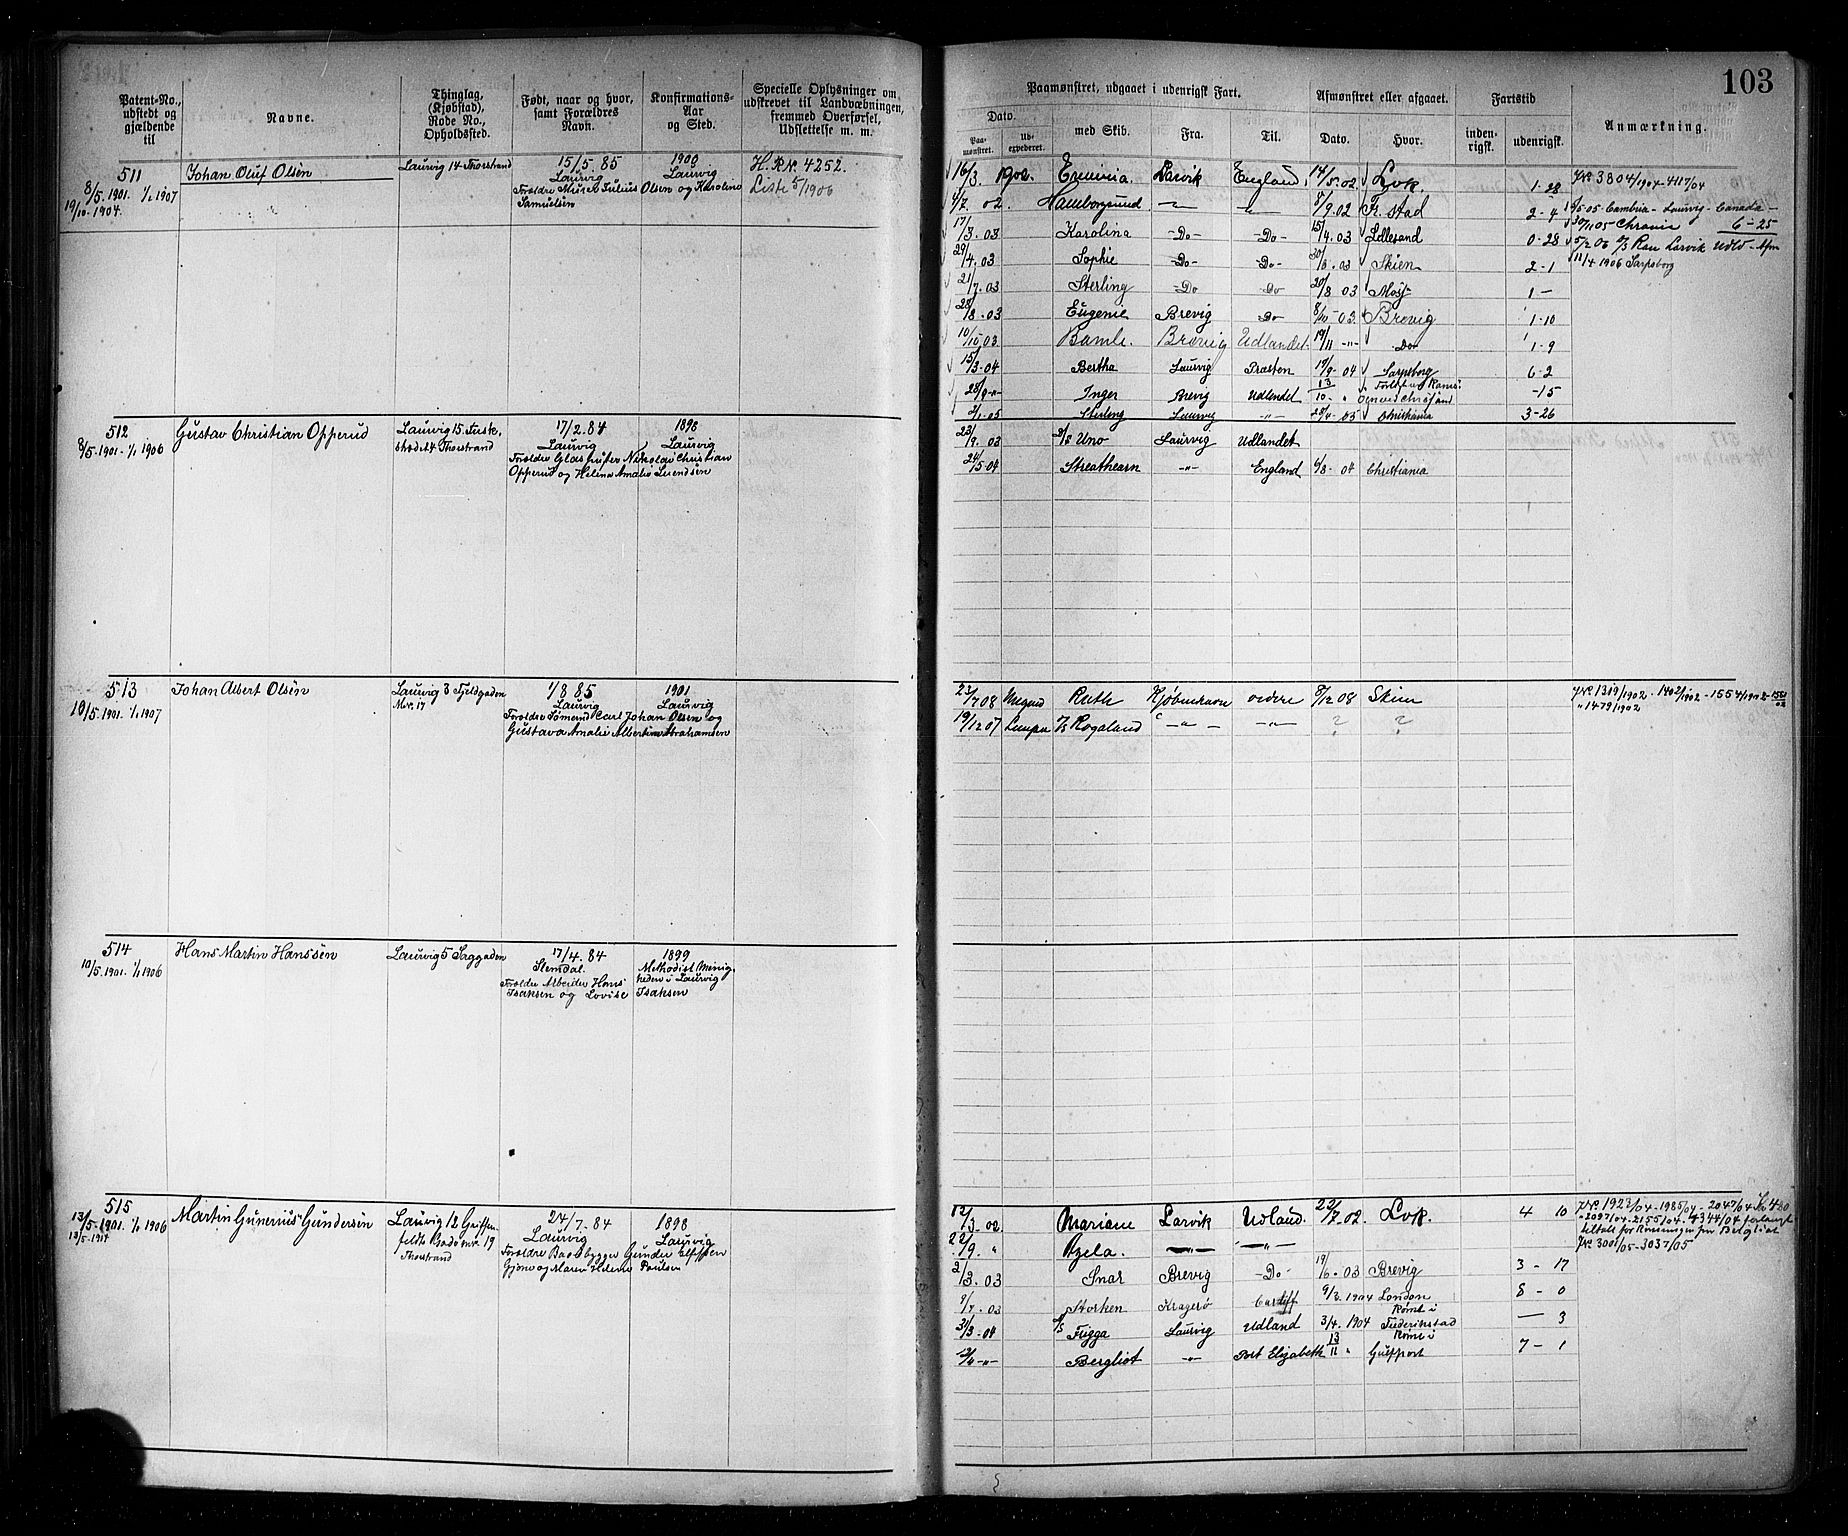 103
Patent-No., udstedt og gjældende til
Navne.
Thinglag, (Kjøbstad), Rode No., Opholdssted.
Født, naar og hvor, samt Forældres Navn.
Konfirmations-Aar og Sted.
Specielle Oplysninger om udskrevet til Landvæbningen, fremmed Overførsel, Udslettelse m. m.
Paamønstret, udgaaet i udenrigsk Fart.
Dato.
Paa-mønstret.
Ud-expederet.
med Skib.
Fra.
Til.
Afmønstret eller afgaaet.
Dato.
Hvor.
Fartstid
inden-rigsk.
udenrigsk.
Anmærkning.
511
8/5 1901. 1/1 1907
19/10-1904.
Johan Oluf Olsen
Laurvig 14 Thorstrand
15/5. 85
Laurvig
Forældre Murer Julius Olsen og Karoline
Samuelsen
1900
Laurvig
H. R. N. 4252.
Liste 5/1906
16/3. 1902. Larvik England 14/5. 02. Lvk. 1-28
4/7 02. Hamborgsund 8/9 02 Fr. stad 2-4
17/3. 03 Karolina Do Do 15/4. 03 Lillesand 0-28
29/4. 03 Sophie Do Do 30/6. 03 Skien 2-1
21/7. 03 Sterling Do Do 20/8 03 Moss 1-
28/8. 03 Eugenie Brevig Do 8/10-03. Brevig 1-10
10/10 03. Bamle. Brevig Udlandet. 19/11 -"- Do 1-9
15/3-04 Bertha Laurvig Præsten 17/9-04 Sarpsborg 6-2
28/9 -"- Inger Brevig Udlandet 13/10 - " -15
2/1-05 Sterling Laurvig -"- 28/4-05 Christiania 3-26
J.No 3804/1904-4117/04
5-05 Cambria - Laurvig - Canada -
30/11 05 Chrania 6-25
5/2 06 Ran Larvik Udld - Afm
11/4 1906 Sarpsborg
512
8/5-1901-1/1 1906
Gustav Christian Opperud
Laurvig 15. Torstrand
17/2. 84
Laurvig
Forældre Glaspuster Nikolai Christian
Opperud og Helene Amalie Svendsen
1898
Laurvig
23/9. 03 S/S Uno Laurvig Udlandet
24/5 04 Streathearn -"- England 6/8-04 Christiania
513
10/5. 1901. 1/1 1907
Johan Albert Olsen
Laurvig 8 Fjeldgaden
No. 17
1/8 85
Laurvig
Forældre Sømand Carl Johan Olsen og
Gustava Amalie Albertine Abrahamsen
1901
Laurvig
23/7 08 Ruth Kjøbenhavn vidre 8/12 08 Skien
19/12 07 S/S Rogaland -"- -"- ? ?
J.No 1319/1902-1402/1902-1554/1902
" 1479/1902
514
10/5. 1901. 1/1 1906
Hans Martin Hanssen
Laurvig 5 Saggaden
17/4. 84
Slemdal.
Forældre Arbeider Hans
Isaksen og Lovise
1899
Methodist Menig-
heden i Laurvig
Isaksen
515
13/5. 1901. 1/1 1906
12/5-1914
Martin Gunerius Gundersen
Laurvig 12 Griffen-
feldts Gade No. 19
Thorstrand
24/7. 84
Laurvig
Forældre Baadbygger Gunder Elefsen
Gjone og Maren Helene Poulsen
1898
Laurvig
12/3. 02. Mariane Larvik Udland. 22/7. 02. Lvk. 4 10
22/9. " Azela. -"- -"-
2/3. 03 Snar Brevig Do 19/6. 03 Brevig 3-17
9/7. 03 Storken Kragerø Cardiff 9/3. 1904 London 8-0
31/3-04 S/S Frigga Laurvig Udland 3/4. 1904 Rømt i Frederikstad - 3
Bergliot -"- Port Elizabeth 13/11 " Rømt i Gulfport 7-1
J.No 1923/04-1985/04-2047/04
2097/04-2155/04. 4344/04 forlangt
J.No 3001/05-3037/05